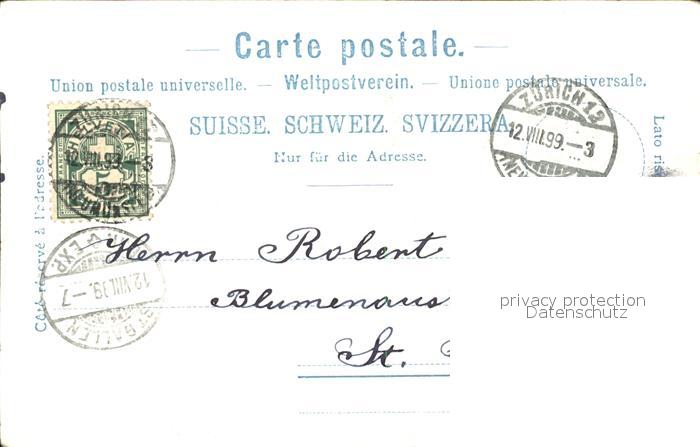 Carte postale.
Union postale universelle. — Weltpostverein. — Unione postale universale.
SUISSE. SCHWEIZ. SVIZZERA
Nur für die Adresse.
Côté réservé à l'adresse.
Lato ris
HELVETIA
5
12.VIII.99.-3
ZÜRICH 12
12.VIII.99.-3
(NEU
EXP.
12.VIII.99.-7
ST. GALLEN
Herrn Robert
Blumenaus
St.
privacy protection
Datenschutz